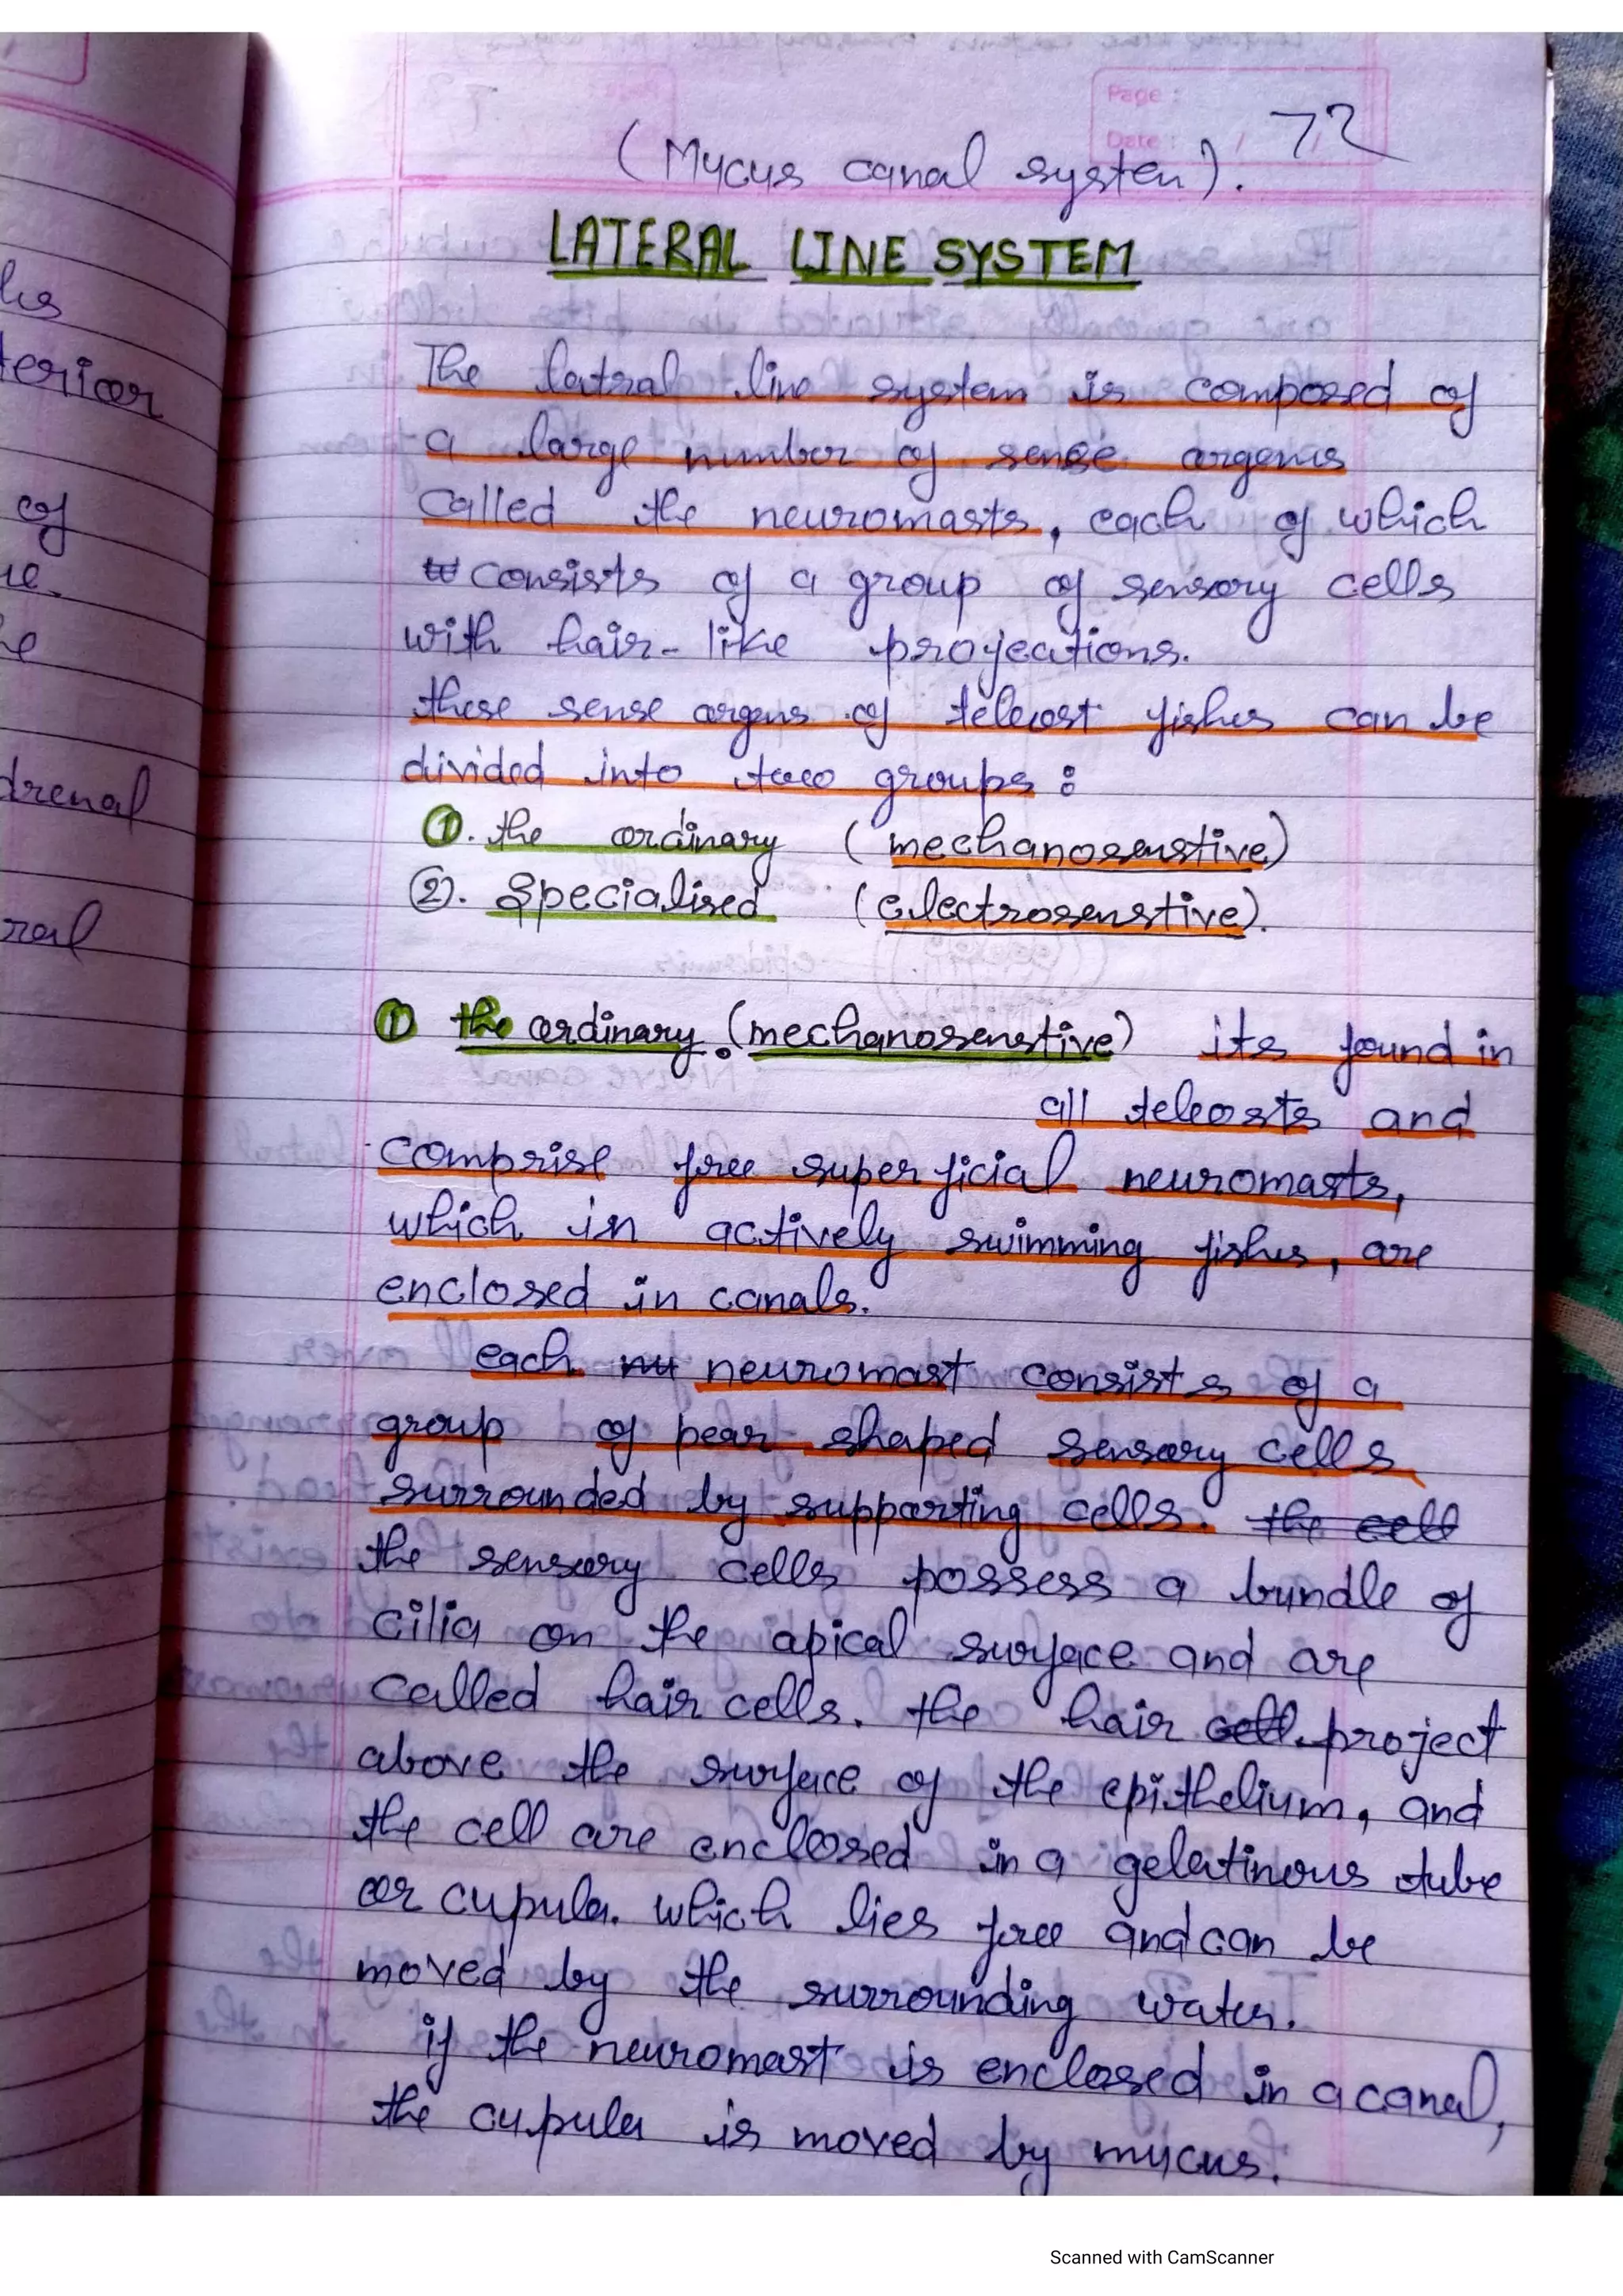 Page :
Date : / /
72
(Mucus canal system).
LATERAL LINE SYSTEM
The latral line system is composed of
a large number of sense orgens
called the neuromasts, each of which
consists of a group of sensory cells
with hair-like projections.
these sense orgens of teleost fishes can be
divided into two groups :
①. the ordinary (mechanosenstive)
②. Specialised (electrosenstive).
① the ordinary (mechanosenstive) its found in
all teleosts and
comprise free superficial neuromasts,
which in actively swimming fishes, are
enclosed in canals.
each neuromast consists of a
group of pear shaped sensory cells
surrounded by supporting cells. the cell
the sensory cells possess a bundle of
cilia on the apical surface and are
called hair cells. the hair cell project
above the surface of the epithelium, and
the cell are enclosed in a gelatinous tube
or cupula. which lies free and can be
moved by the surrounding water.
if the neuromast is enclosed in a canal,
the cupula is moved by mucus.
terior
of
drenal
Scanned with CamScanner